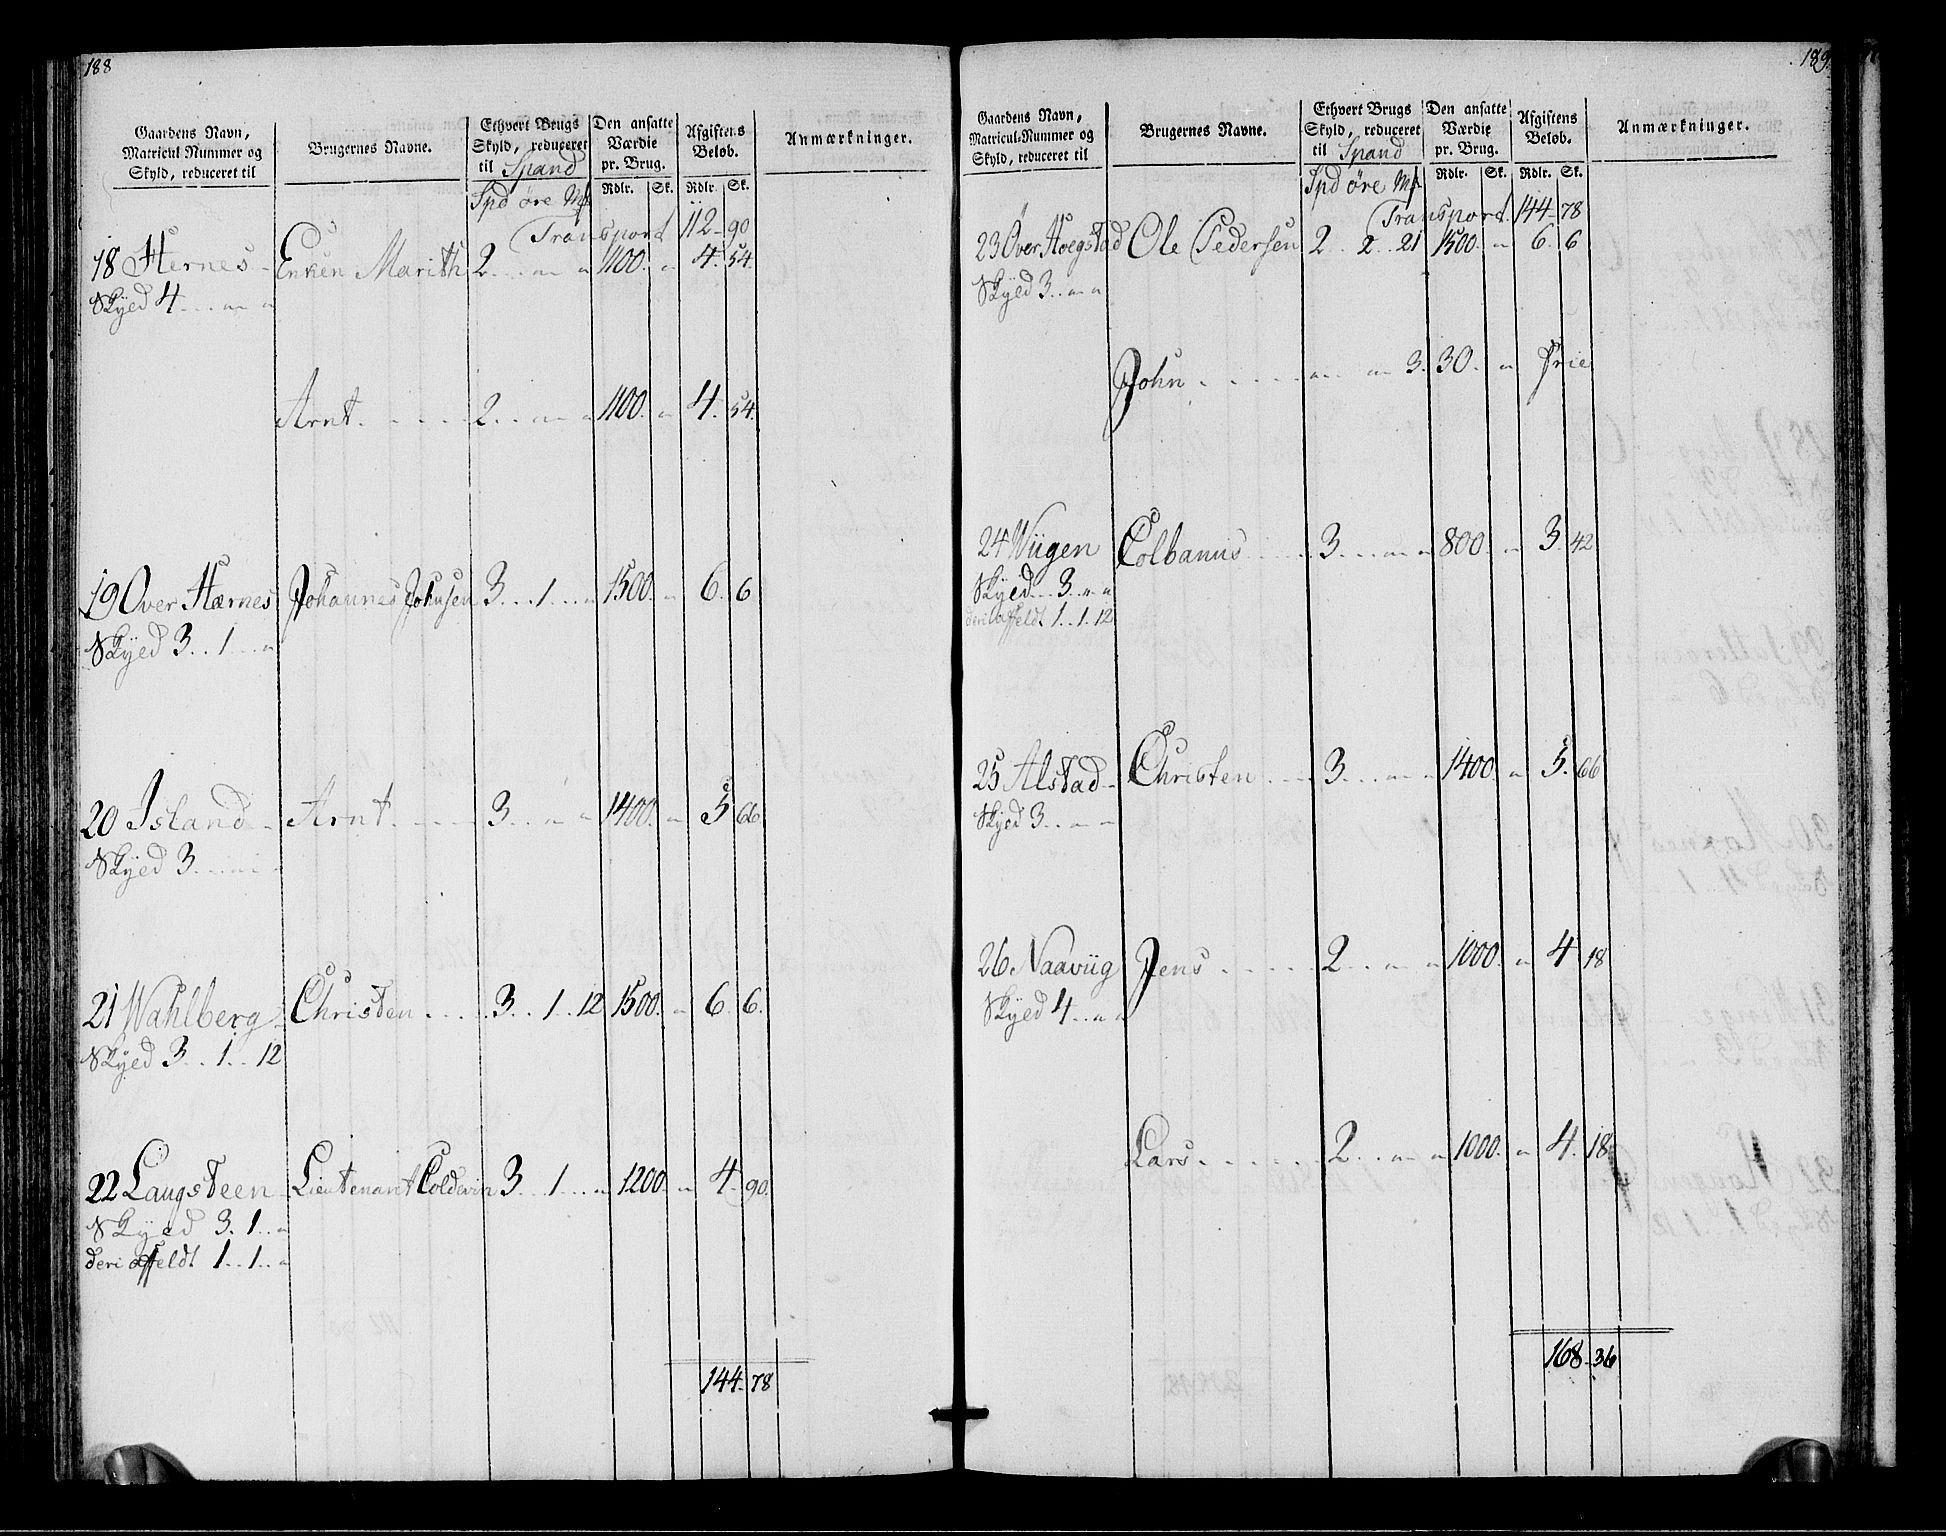 188
Gaardens Navn, Matricul Nummer og Skyld, reduceret til | Brugernes Navne. | Ethvert Brugs Skyld, reduceret til Spand | Den ansatte Værdie pr. Brug. | Afgiftens Beløb. | Anmærkninger.
Spd øre Mk | Rdlr. | Sk. | Rdlr. | Sk.
Transport 112 - 90
18 Hernes - Enken Marith 2 . . " " 1100. " 4. 54.
Skyed 4 . . . " "
Arnt . . . . . 2 . . " " 1100. " 4. 54.
19 Over Hærnes Johannes Johnsen 3 . . 1 . . " 1500. " 6. 6
Skyed 3 . . 1 . . "
20 Island - Arnt . . . . 3 . . " " 1400. " 5 66
Skyed 3 . . " "
21 Wahlberg - Christen . . . . 3 . . 1 . 12 1500. " 6. 6.
Skyed 3 . . 1 . . 12
22 Laugsteen Lieutenant Coldevin 3 . . 1 . . " 1200. " 4. 90.
Skyed 3 . 1 . . "
deri affeldt 1 . . 1 . . "
144. 78
189
Gaardens Navn, Matricul-Nummer og Skyld, reduceret til | Brugernes Navne. | Ethvert Brugs Skyld, reduceret til Spand | Den ansatte Værdie pr. Brug. | Afgiftens Beløb. | Anmærkninger.
Spd øre Mk | Rdlr. | Sk. | Rdlr. | Sk.
Transport. 144 - 78
23 Over Hoegstad Ole Pedersen 2 . . 2 . . 21 1500. " 6. 6
Skyed 3 . . " "
John . . . . . " . . " 3. 30. " frie
24 Wiigen Colbanus . . . . 3 . . . " " 800. " 3. 42
Skyed . . . 3 . " "
deri affeldt 1 . . 1 . 12
25 Alstad - Christen . . . 3 . . . " " 1400. " 5. 66
Skyed 3 . . " "
26 Naaviig Jens . . . . . 2 . . " " 1000. " 4 18
Skyed 4 . . " "
Lars . . . . . . 2 . . " " 1000. " 4. 18
168 - 36